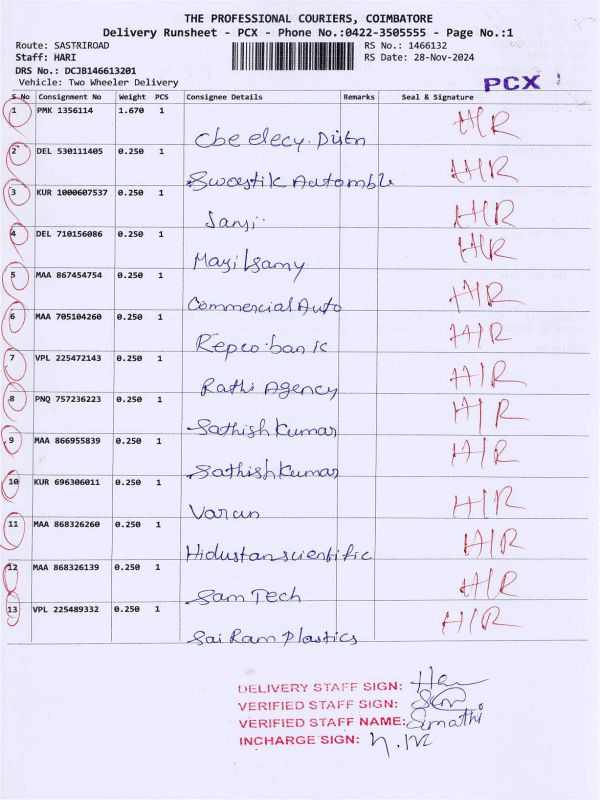 THE PROFESSIONAL COURIERS, COIMBATORE
Delivery Runsheet - PCX - Phone No.:0422-3505555 - Page No.:1
Route: SASTRIROAD RS No.: 1466132
Staff: HARI RS Date: 28-Nov-2024
DRS No.: DCJB146613201
Vehicle: Two Wheeler Delivery PCX
S No Consignment No Weight PCS Consignee Details Remarks Seal & Signature
1 PMK 1356114 1.670 1 H/R
Cbe elecy. Distn
2 DEL 530111405 0.250 1 H/R
Swastik Automble
3 KUR 1000607537 0.250 1 H/R
4 DEL 710156086 0.250 1 H/R
5 MAA 867454754 0.250 1 H/R
Commercial Auto
6 MAA 705104260 0.250 1 H/R
Repco bank
7 VPL 225472143 0.250 1 H/R
Rathi Agency
8 PNQ 757236223 0.250 1 H/R
Sathish Kumar
9 MAA 866955839 0.250 1 H/R
Sathish Kumar
10 KUR 696306011 0.250 1 H/R
Varun
11 MAA 868326260 0.250 1 H/R
Hidustan scientific
12 MAA 868326139 0.250 1 H/R
Sam Tech
13 VPL 225489332 0.250 1 H/R
Sai Ram Plastics
DELIVERY STAFF SIGN:
VERIFIED STAFF SIGN:
VERIFIED STAFF NAME: Sumathi
INCHARGE SIGN: